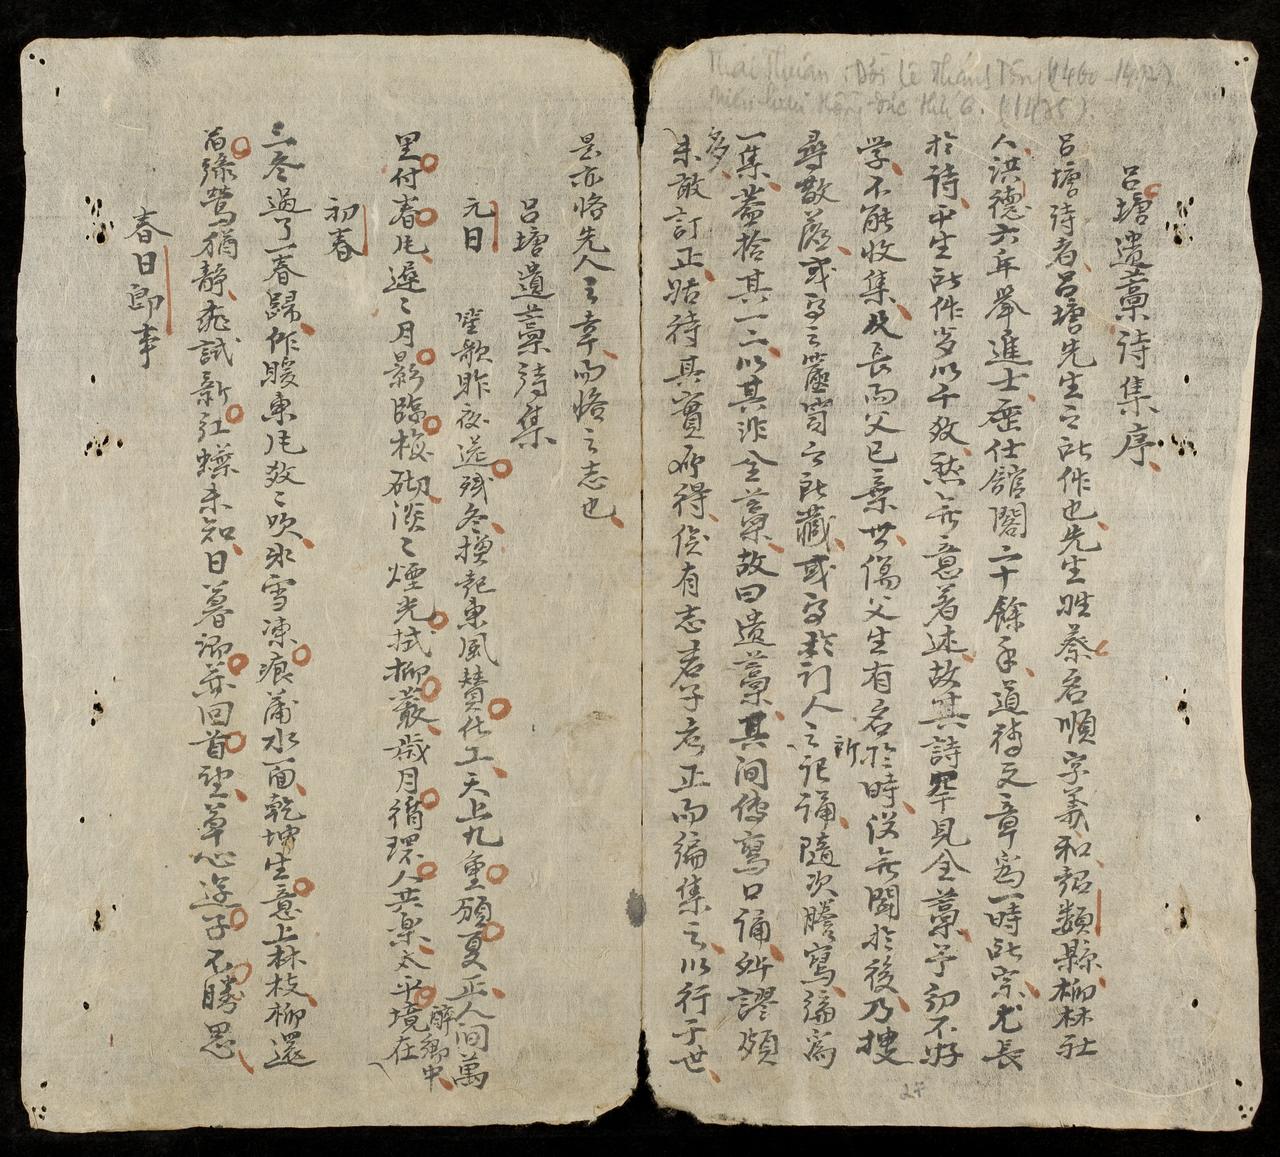 Thái Thuận: Đời Lê Thánh Tông (1460-1497)
niên hiệu Hồng-đức thứ 6. (1475).
呂塘遺藁詩集序
呂塘詩者呂塘先生之所作也先生姓蔡名順字義和超類縣柳林社
人洪德六年舉進士歷仕舘閣二十餘年道德文章爲一時所宗尤長
於詩平生所作多以千数然無意着述故其詩罕見全藁予初不好
学不能收集及長而父已棄世傷父生有名於時没無聞於後乃搜
尋散落或写之蠹笥之所藏或写於訂人之所記誦隨次謄寫編爲
一集蓋拾其一二以其非全藁故曰遺藁其间傳寫口誦舛謬頗
多未敢訂正姑待其實希得俟有志君子考正而編集之以行于世
是亦恪先人之幸而恪之志也
呂塘遺藁詩集
元日
笙歌昨夜送残冬擡起東風賛化工天上九重頒夏正人间萬
里付春風遲〻月影臨梅砌淡〻煙光拭柳叢歳月循環人共楽太平境在醉鄉中
初春
三冬過了一春歸作暖東風敎〻吹氷雪凍痕蒲水面乾坤生意上林枝柳還
旧緑鶯猶静花試新红蝶未知日暮高楼回首望草心遊子不勝思
春日即事
24